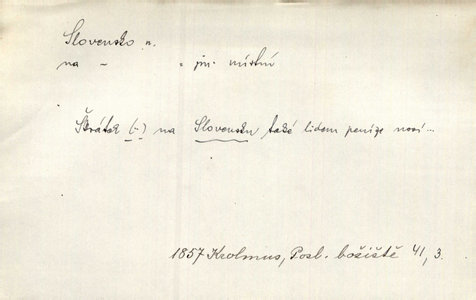 Slovensko n.
na – = jm. místní
Škrátek (..) na Slovensku také lidem peníze nosí...
1857 Krolmus, Posl. božiště 41, 3.